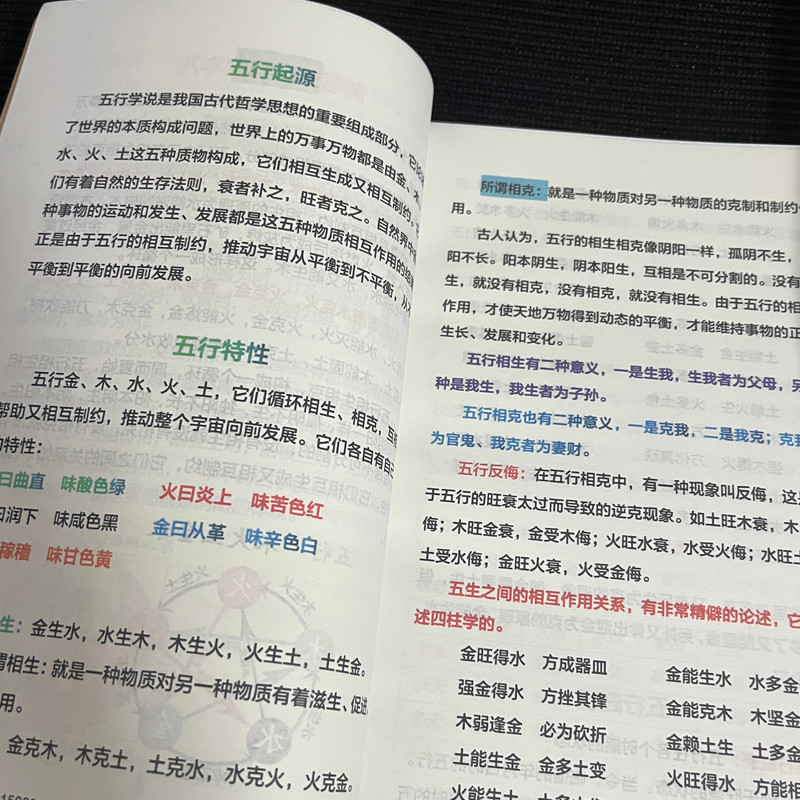 五行起源
五行学说是我国古代哲学思想的重要组成部分，它
了世界的本质构成问题，世界上的万事万物都是由金、木、
水、火、土这五种质物构成，它们相互生成又相互制约，
们有着自然的生存法则，衰者补之，旺者克之。自然界中
种事物的运动和发生、发展都是这五种物质相互作用的结
正是由于五行的相互制约，推动宇宙从平衡到不平衡，从
平衡到平衡的向前发展。
五行特性
五行金、木、水、火、土，它们循环相生、相克，互相
帮助又相互制约，推动整个宇宙向前发展。它们各自有自
的特性：
曰曲直 味酸色绿 火曰炎上 味苦色红
曰润下 味咸色黑 金曰从革 味辛色白
稼穑 味甘色黄
生：金生水，水生木，木生火，火生土，土生金。
谓相生：就是一种物质对另一种物质有着滋生、促进
用。
金克木，木克土，土克水，水克火，火克金。
所谓相克：就是一种物质对另一种物质的克制和制约
用。
古人认为，五行的相生相克像阴阳一样，孤阴不生，
阳不长。阳本阴生，阴本阳生，互相是不可分割的。没有
生，就没有相克，没有相克，就没有相生。由于五行的相
作用，才使天地万物得到动态的平衡，才能维持事物的正
生长、发展和变化。
五行相生有二种意义，一是生我，生我者为父母，另
种是我生，我生者为子孙。
五行相克也有二种意义，一是克我，二是我克；克我
为官鬼、我克者为妻财。
五行反侮：在五行相克中，有一种现象叫反侮，这是
于五行的旺衰太过而导致的逆克现象。如土旺木衰，木
侮；木旺金衰，金受木侮；火旺水衰，水受火侮；水旺土
土受水侮；金旺火衰，火受金侮。
五生之间的相互作用关系，有非常精僻的论述，它
述四柱学的。
金旺得水 方成器皿 金能生水 水多金
强金得水 方挫其锋 金能克木 木坚金
木弱逢金 必为砍折 金赖土生 土多金
土能生金 金多土变 火旺得水 方能相
火能生土 土多火